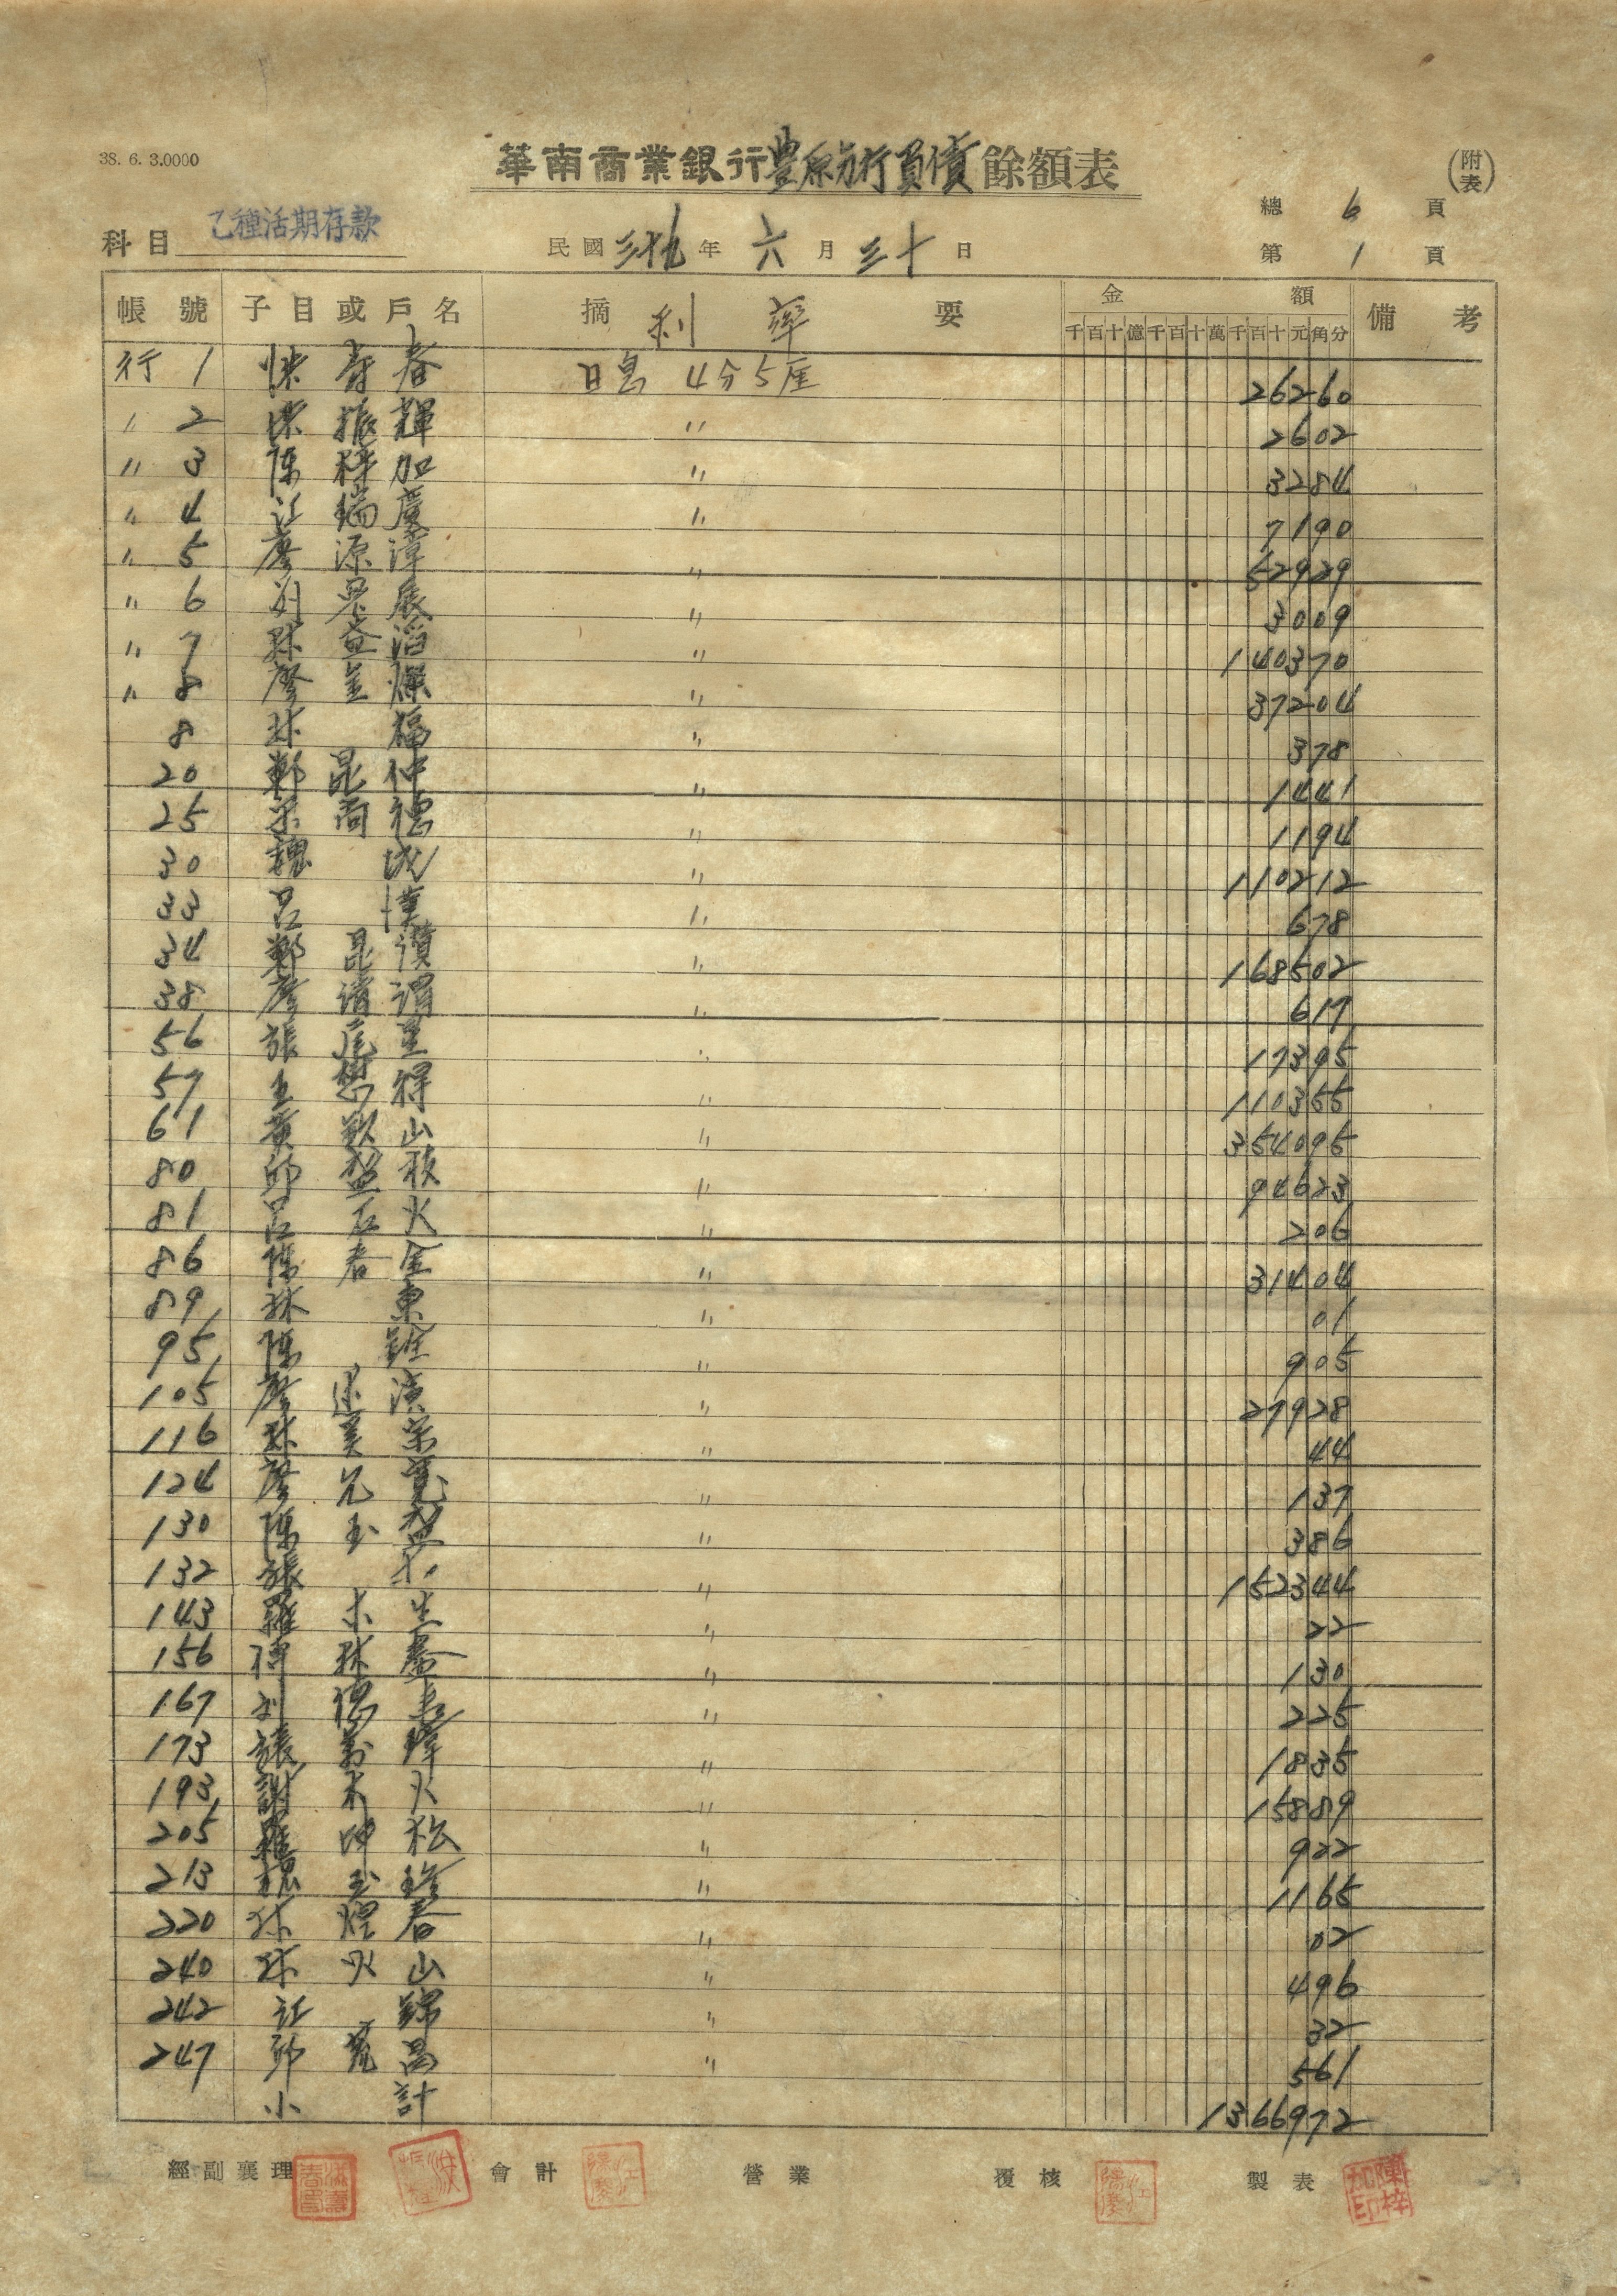 38. 6. 3.0000
華南商業銀行豐原分行負債餘額表
(附表)
總 6 頁
科目 乙種活期存款
民國三十九年 六 月 三十 日
第 1 頁
帳號 子目或戶名 摘要 利率 金額 備考
千百十億千百十萬千百十元角分
行 1 春 日息 4分5厘 26260
〃 2 振輝 〃 2602
〃 3 陳梓加 〃 3284
〃 4 江瑞慶 〃 7190
〃 5 廖源漳 〃 52929
〃 6 〃 3009
〃 7 林 〃 140370
〃 8 廖金燦 〃 37204
8 林福 〃 378
20 鄭昆仲 〃 1441
25 德 〃 1194
30 魏成 〃 110212
33 呂 〃 678
34 鄭昆讚 〃 168502
38 廖清 〃 617
56 張 〃 17395
57 王 得 〃 110355
61 黃 山 〃 354095
80 邱 枝 〃 94623
81 呂石火 〃 206
86 陳春金 〃 31404
89 林東 〃 01
95 陳 〃 905
105 廖 〃 27928
116 林美宗 〃 44
124 廖 〃 137
130 陳玉盤 〃 386
132 張 〃 152344
143 羅木生 〃 22
156 林 〃 130
167 劉德 〃 225
173 張 〃 1835
193 謝木火 〃 15889
205 羅坤松 〃 922
213 玉 〃 1165
220 林煌春 〃 02
240 林火山 〃 496
242 江錦 〃 32
247 邱 昌 〃 561
小計 1366972
經副襄理 會計 營業 覆核 製表
陳梓加印